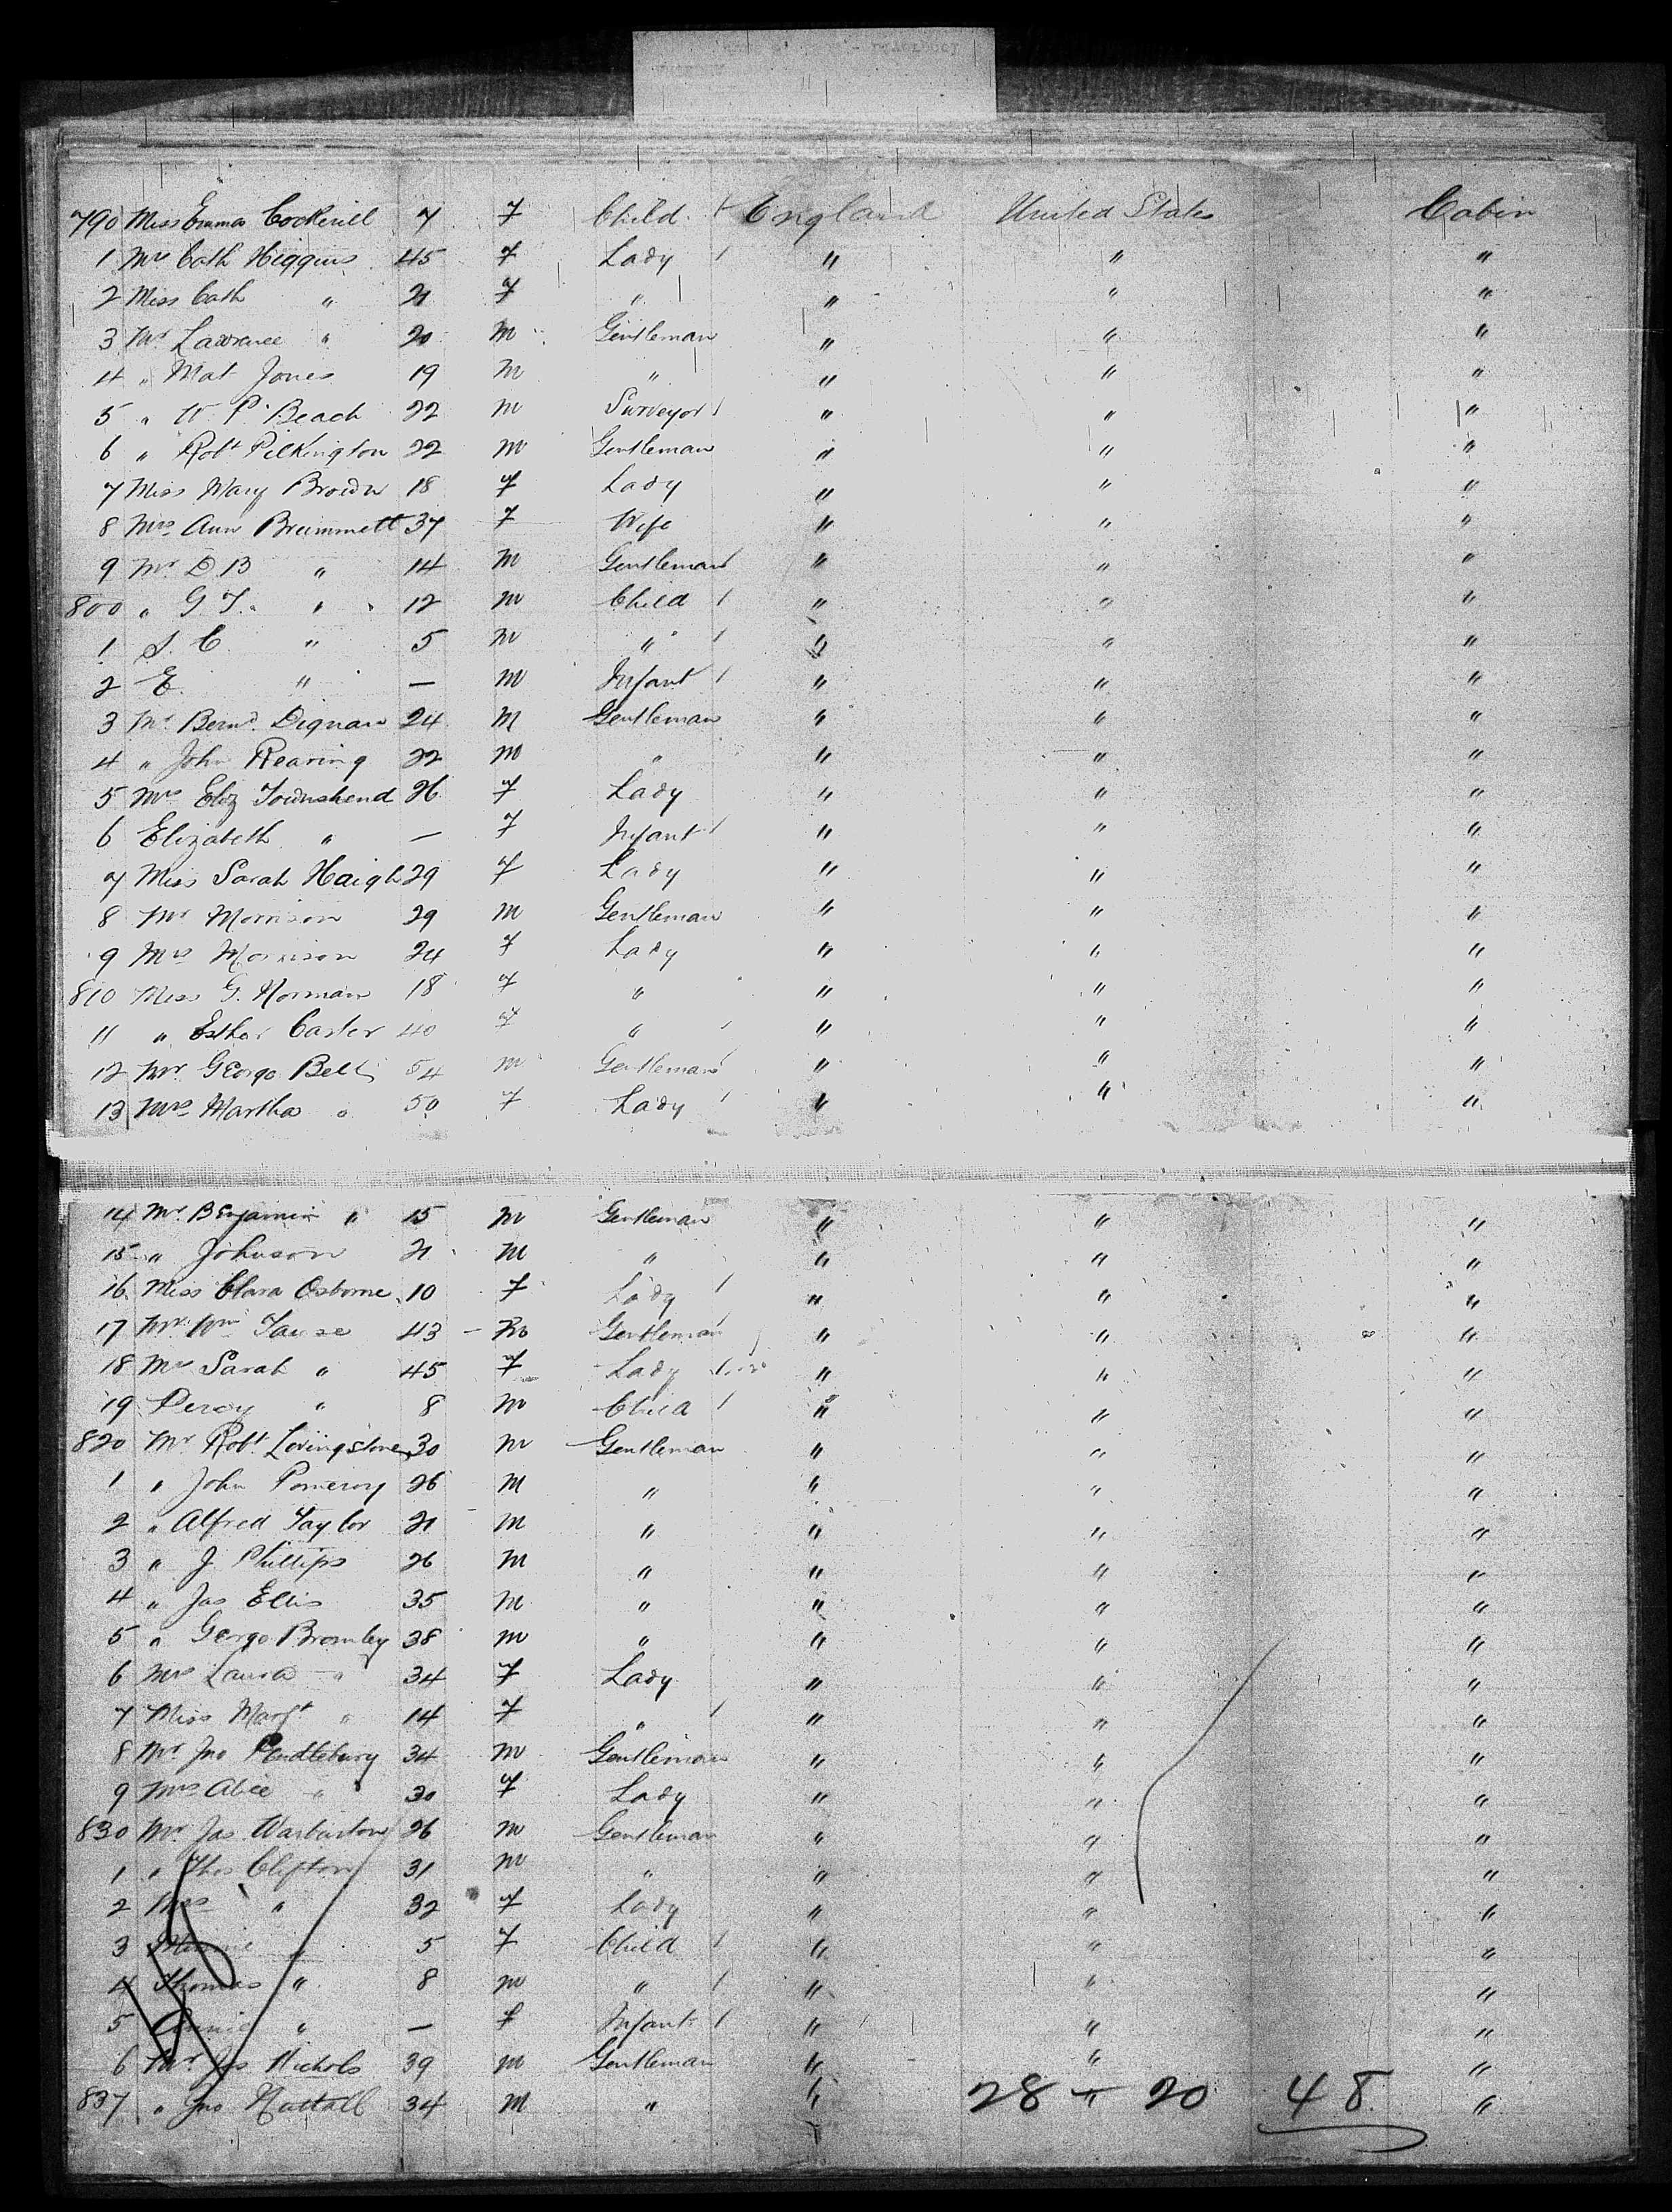 790 Miss Emma Cockerill 7 F Child England United States Cabin
1 Mrs Cath Higgins 45 F Lady " " "
2 Miss Cath " 21 F " " " "
3 Mr Lawrence " 20 M Gentleman " " "
4 " Mat Jones 19 M " " " "
5 " W. P. Beach 22 M Surveyor " " "
6 " Robt Pilkington 22 M Gentleman " " "
7 Miss Mary Brown 18 F Lady " " "
8 Mrs Ann Brummett 37 F Wife " " "
9 Mr D B " 14 M Gentleman " " "
800 " G. T. " 12 M Child " " "
1 S. C. " 5 M " " " "
2 E. " — M Infant " " "
3 Mr Bernd. Dignan 24 M Gentleman " " "
4 " John Rearing 22 M " " " "
5 Mrs Eliz Townshend 26 F Lady " " "
6 Elizabeth " — F Infant " " "
7 Miss Sarah Haigh 29 F Lady " " "
8 Mr Morrison 29 M Gentleman " " "
9 Mrs Morrison 24 F Lady " " "
810 Miss G. Norman 18 F " " " "
11 " Esther Carter 40 F " " " "
12 Mr George Bell 54 M Gentleman " " "
13 Mrs Martha " 50 F Lady " " "
14 Mr. Benjamin " 15 M Gentleman " " "
15 " Johnson 21 M " " " "
16 Miss Clara Osborne 10 F Lady " " "
17 Mr. Wm 43 M Gentleman " " "
18 Mrs Sarah " 45 F Lady " " "
19 Percy " 8 M Child " " "
820 Mr Robt Livingstone 30 M Gentleman " " "
1 " John Pomeroy 26 M " " " "
2 " Alfred Taylor 21 M " " " "
3 " J. Phillips 26 M " " " "
4 " Jas Ellis 35 M " " " "
5 " George Bromley 38 M " " " "
6 Mrs Laura " 34 F Lady " " "
7 Miss Margt " 14 F " " " "
8 Mr Jno Pendlebury 34 M Gentleman " " "
9 Mrs Alice " 30 F Lady " " "
830 Mr Jas Warburton 26 M Gentleman " " "
1 " Thos Clifton 31 M " " " "
2 Mrs " 32 F Lady " " "
3 Minnie " 5 F Child " " "
4 Thomas " 8 M " " " "
5 Annie " — F Infant " " "
6 Mr Jas Nichols 39 M Gentleman " " "
837 " Jno Nuttall 34 M " " " "
28 + 20 48